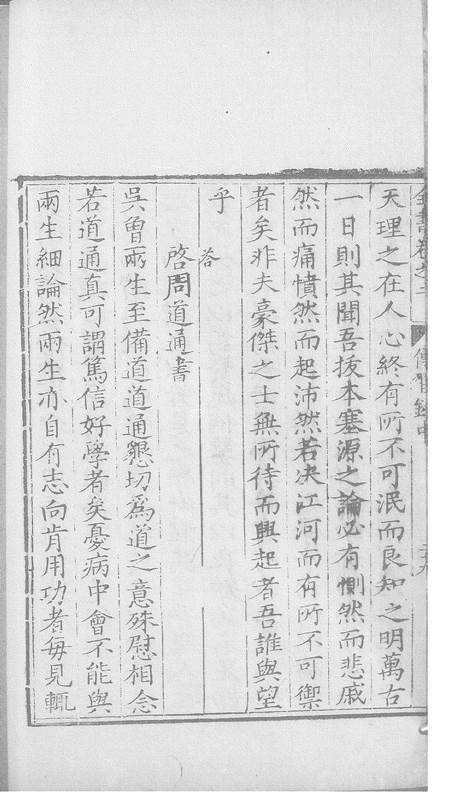 全書卷之二 傳習錄中
天理之在人心終有所不可泯而良知之明萬古
一日則其聞吾拔本塞源之論必有惻然而悲戚
然而痛憤然而起沛然若决江河而有所不可禦
者矣非夫豪傑之士無所待而興起者吾誰與望
乎
答
啓周道通書
吳曾兩生至備道道通懇切爲道之意殊慰相念
若道通真可謂篤信好學者矣憂病中會不能與
兩生細論然兩生亦自有志向肯用功者每見輒